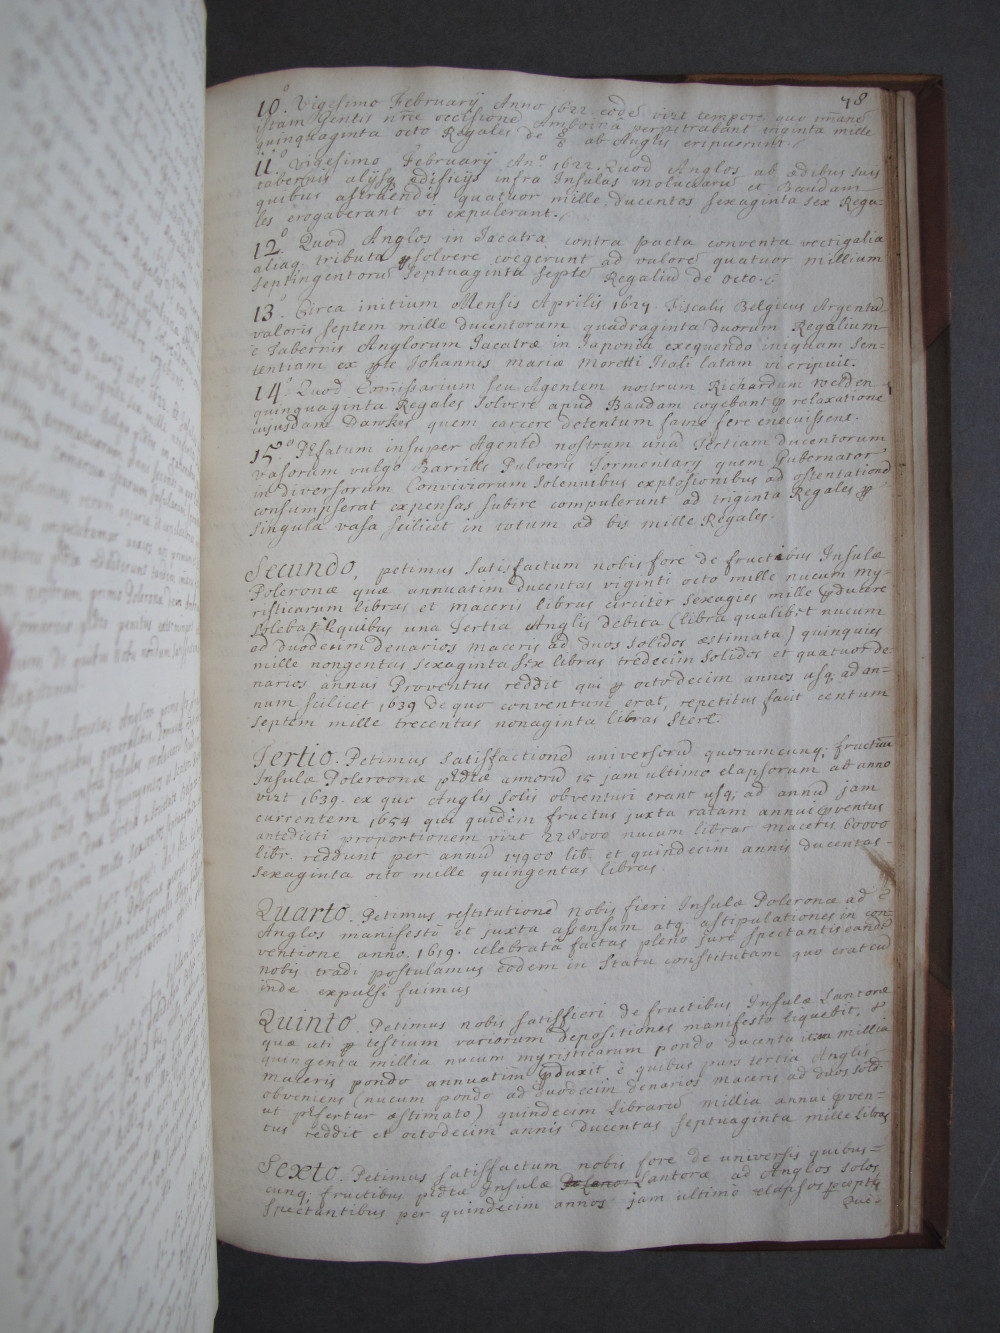 78
10.º Vigesimo Februarij Anno 1622. eodē vizt tempore quo im̄ane
istam Gentis nr̄æ occisionē Amboina perpetrabant triginta mille
quinquaginta octo Regales de 8/8 ab Anglis eripuerunt.
11.º Vigesimo Februarij An.º 1622. Quod Anglos ab ædibus suis
tabernis alijsq ædificijs infra Insulas Moluccarū et Bandam
quibus astruendis quatuor mille ducentos sexaginta sex Rega=
les erogaverant vi expulerant.
12.º Quod Anglos in Jacatra contra pacta conventa vectigalia
aliaq. tributa ꝑsolvere coegerunt ad valorē quatuor millium
septingentorū septuaginta septē Regaliū de octo.
13.º Circa initium Mensis Aprilis 1624 Fiscalis Belgicus Argentū
valoris septem mille ducentorum quadraginta duorum Regalium
e Tabernis Anglorum Jacatræ in Japonia exequendo iniquam Sen=
tentiam ex ꝑte Johannis Mariæ Moretti Itali latam vi eripuit.
14.º Quod Com̄issarium seu Agentem nostrum Richardum Welden
quinquaginta Regales solvere apud Bandam cogebant ꝑ relaxatione
cujusdam Dawkes quem carcere detentum fame fere enecuissent.
15.º Pr̄fatum insuper Agentē nostrum unā Tertiam ducentorum
vasorum vulgo Barrills Pulveris Tormentarij quem Gubernator
in diversorum Conviviorum solennibus explosionibus ad ostentationē
consumpserat expensas subire compulerunt ad triginta Regales ꝑ
singula vasa scilicet in totum ad bis mille Regales.
Secundo, petimus satisfactum nobis fore de fructibus Insulæ
Poleronæ quæ annuatim ducentas viginti octo mille nucum my=
risticarum libras et maceris libras circiter sexagies mille ꝓducere
solebat Equibus una Tertia Anglis debita (libra qualibet nucum
ad duodecim denarios maceris ad duos solidos æstimata) quinquies
mille nongentas sexaginta sex libras tredecim solidos et quatuor de=
narios annus Proventus reddit qui ꝑ octodecim annos usq; ad an=
num scilicet 1639 de quo conventum erat, repetitus facit centum
septem mille trecentas nonaginta libras Sterl.
Tertio. Petimus satisfactionē universorū quorumcunq; fructuū
Insulæ Poleroonæ pr̄dictæ annorū 15 jam ultimo elapsorum ab anno
vizt 1639. ex quo Anglis solis obventuri erant usq; ad annū jam
currentem 1654 qui quidem fructus juxta ratam annui ꝓventus
antedicti proportionem vizt 228000 nucum librar maceris 60000
libr. reddunt per annū 17900 lib. et quindecim annis ducentas
sexaginta octo mille quingentas libras.
Quarto. Petimus restitutionē nobis fieri Insulæ Poleronæ ad
Anglos manifestō et juxta assensum atq; astipulationes in con=
ventione anno. 1619. celebratā factas pleno jure spectantis eandē
nobis tradi postulamus eodem in statu constitutam quo erat cū
inde expulsi fuimus
Quinto. Petimus nobis satisfieri de fructibus Insulæ Lantoræ
quæ uti ꝑ testium variorum depositiones manifesto liquebit, ꝑ
quingenta millia nucum myristicarum pondo ducenta item millia
maceris pondo annuatim ꝓduxit e quibus pars tertia Anglis
obveniens (nucum pondo ad duodecim denarios maceris ad duos sold
ut pr̄fertur æstimato) quindecim Librarū millia annui ꝓven=
tus reddit et octodecim annis ducentas septuaginta mille Libras
Sexto. Petimus satisfactum nobis fore de universis quibus=
cunq; fructibus pr̄dictæ Insulæ Lantoræ ad Anglos solos
spectantibus per quindecim annos jam ultimō elapsos ꝑceptis
Quie